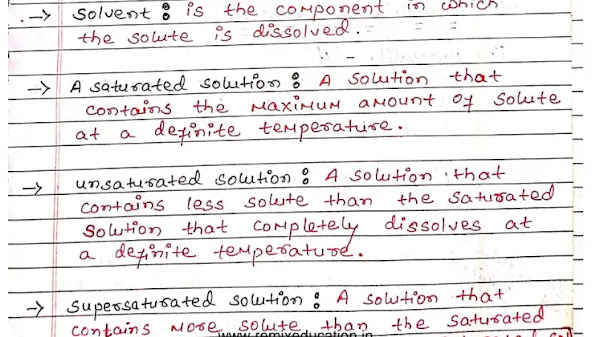 → Solvent : is the component in which
the solute is dissolved.
→ A saturated solution : A solution that
contains the maximum amount of solute
at a definite temperature.
→ unsaturated solution : A solution that
contains less solute than the saturated
solution that completely dissolves at
a definite temperature.
→ supersaturated solution : A solution that
contains more solute than the saturated
www.remixeducation.in